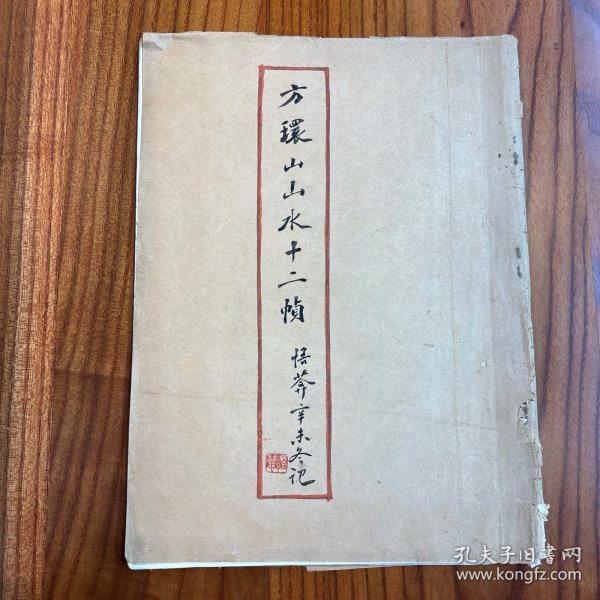 方環山山水十二幀
悟莽辛未冬記
孔夫子旧書网
www.kongfz.com